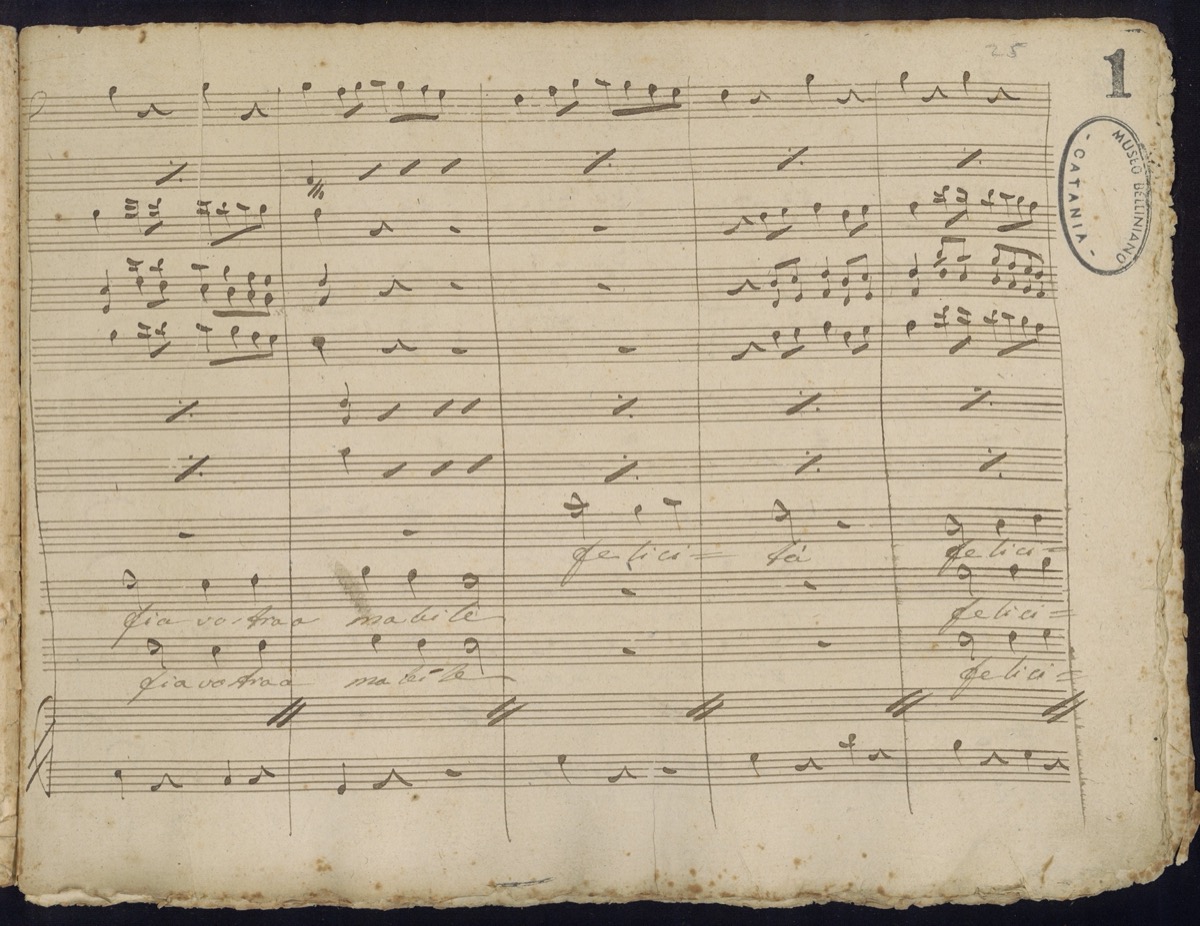 25
1
MUSEO BELLINIANO
- CATANIA -
felici= tà felici=
fia vostra a mabile felici=
fia vostra a mabile felici=